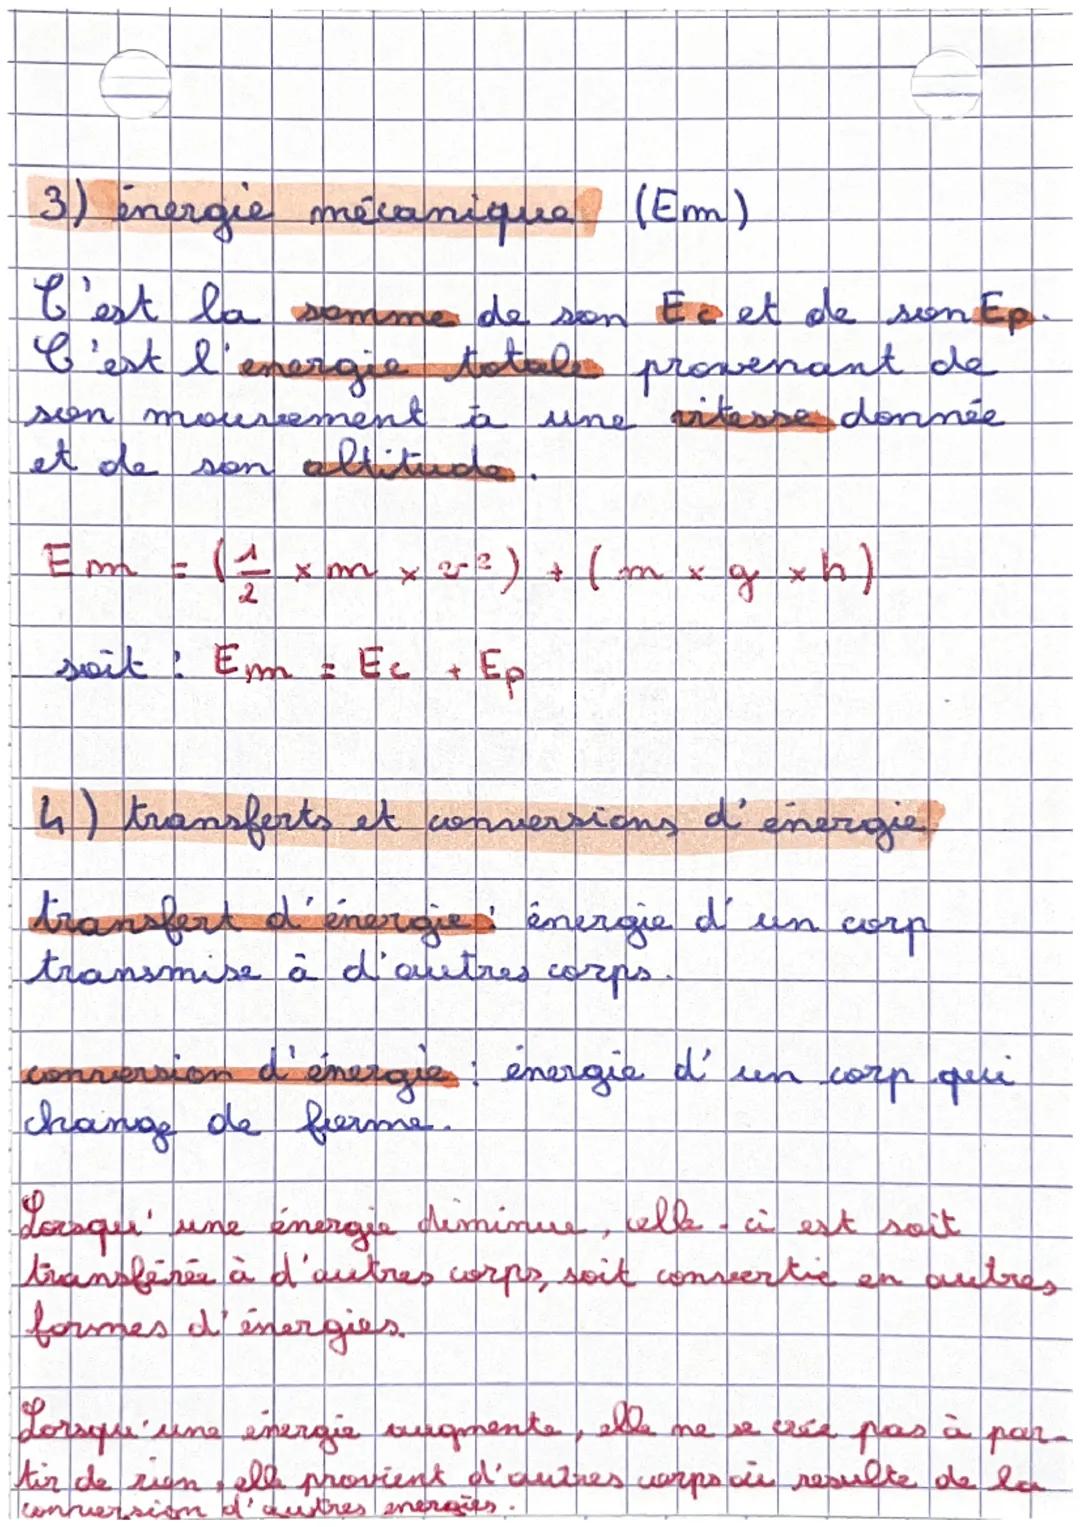 3) énergie mécanique (Em)
C'est la somme de son Ec et de son Ep.
C'est l'energie totale provenant de
son mouvement à une vitesse donnée
et de son altitude.
Em = (1/2 x m x v²) + (m x g x h)
soit : Em = Ec + Ep
4) transferts et conversions d'énergie
transfert d'énergie : énergie d'un corp
transmise à d'autres corps.
conversion d'énergie : énergie d'un corp qui
change de forme.
Lorsqu'une énergie diminue, celle-ci est soit
transférée à d'autres corps, soit convertie en autres
formes d'énergies.
Lorsqu'une énergie augmente, elle ne se crée pas à par-
tir de rien, elle provient d'autres corps où resulte de la
conversion d'autres energies.